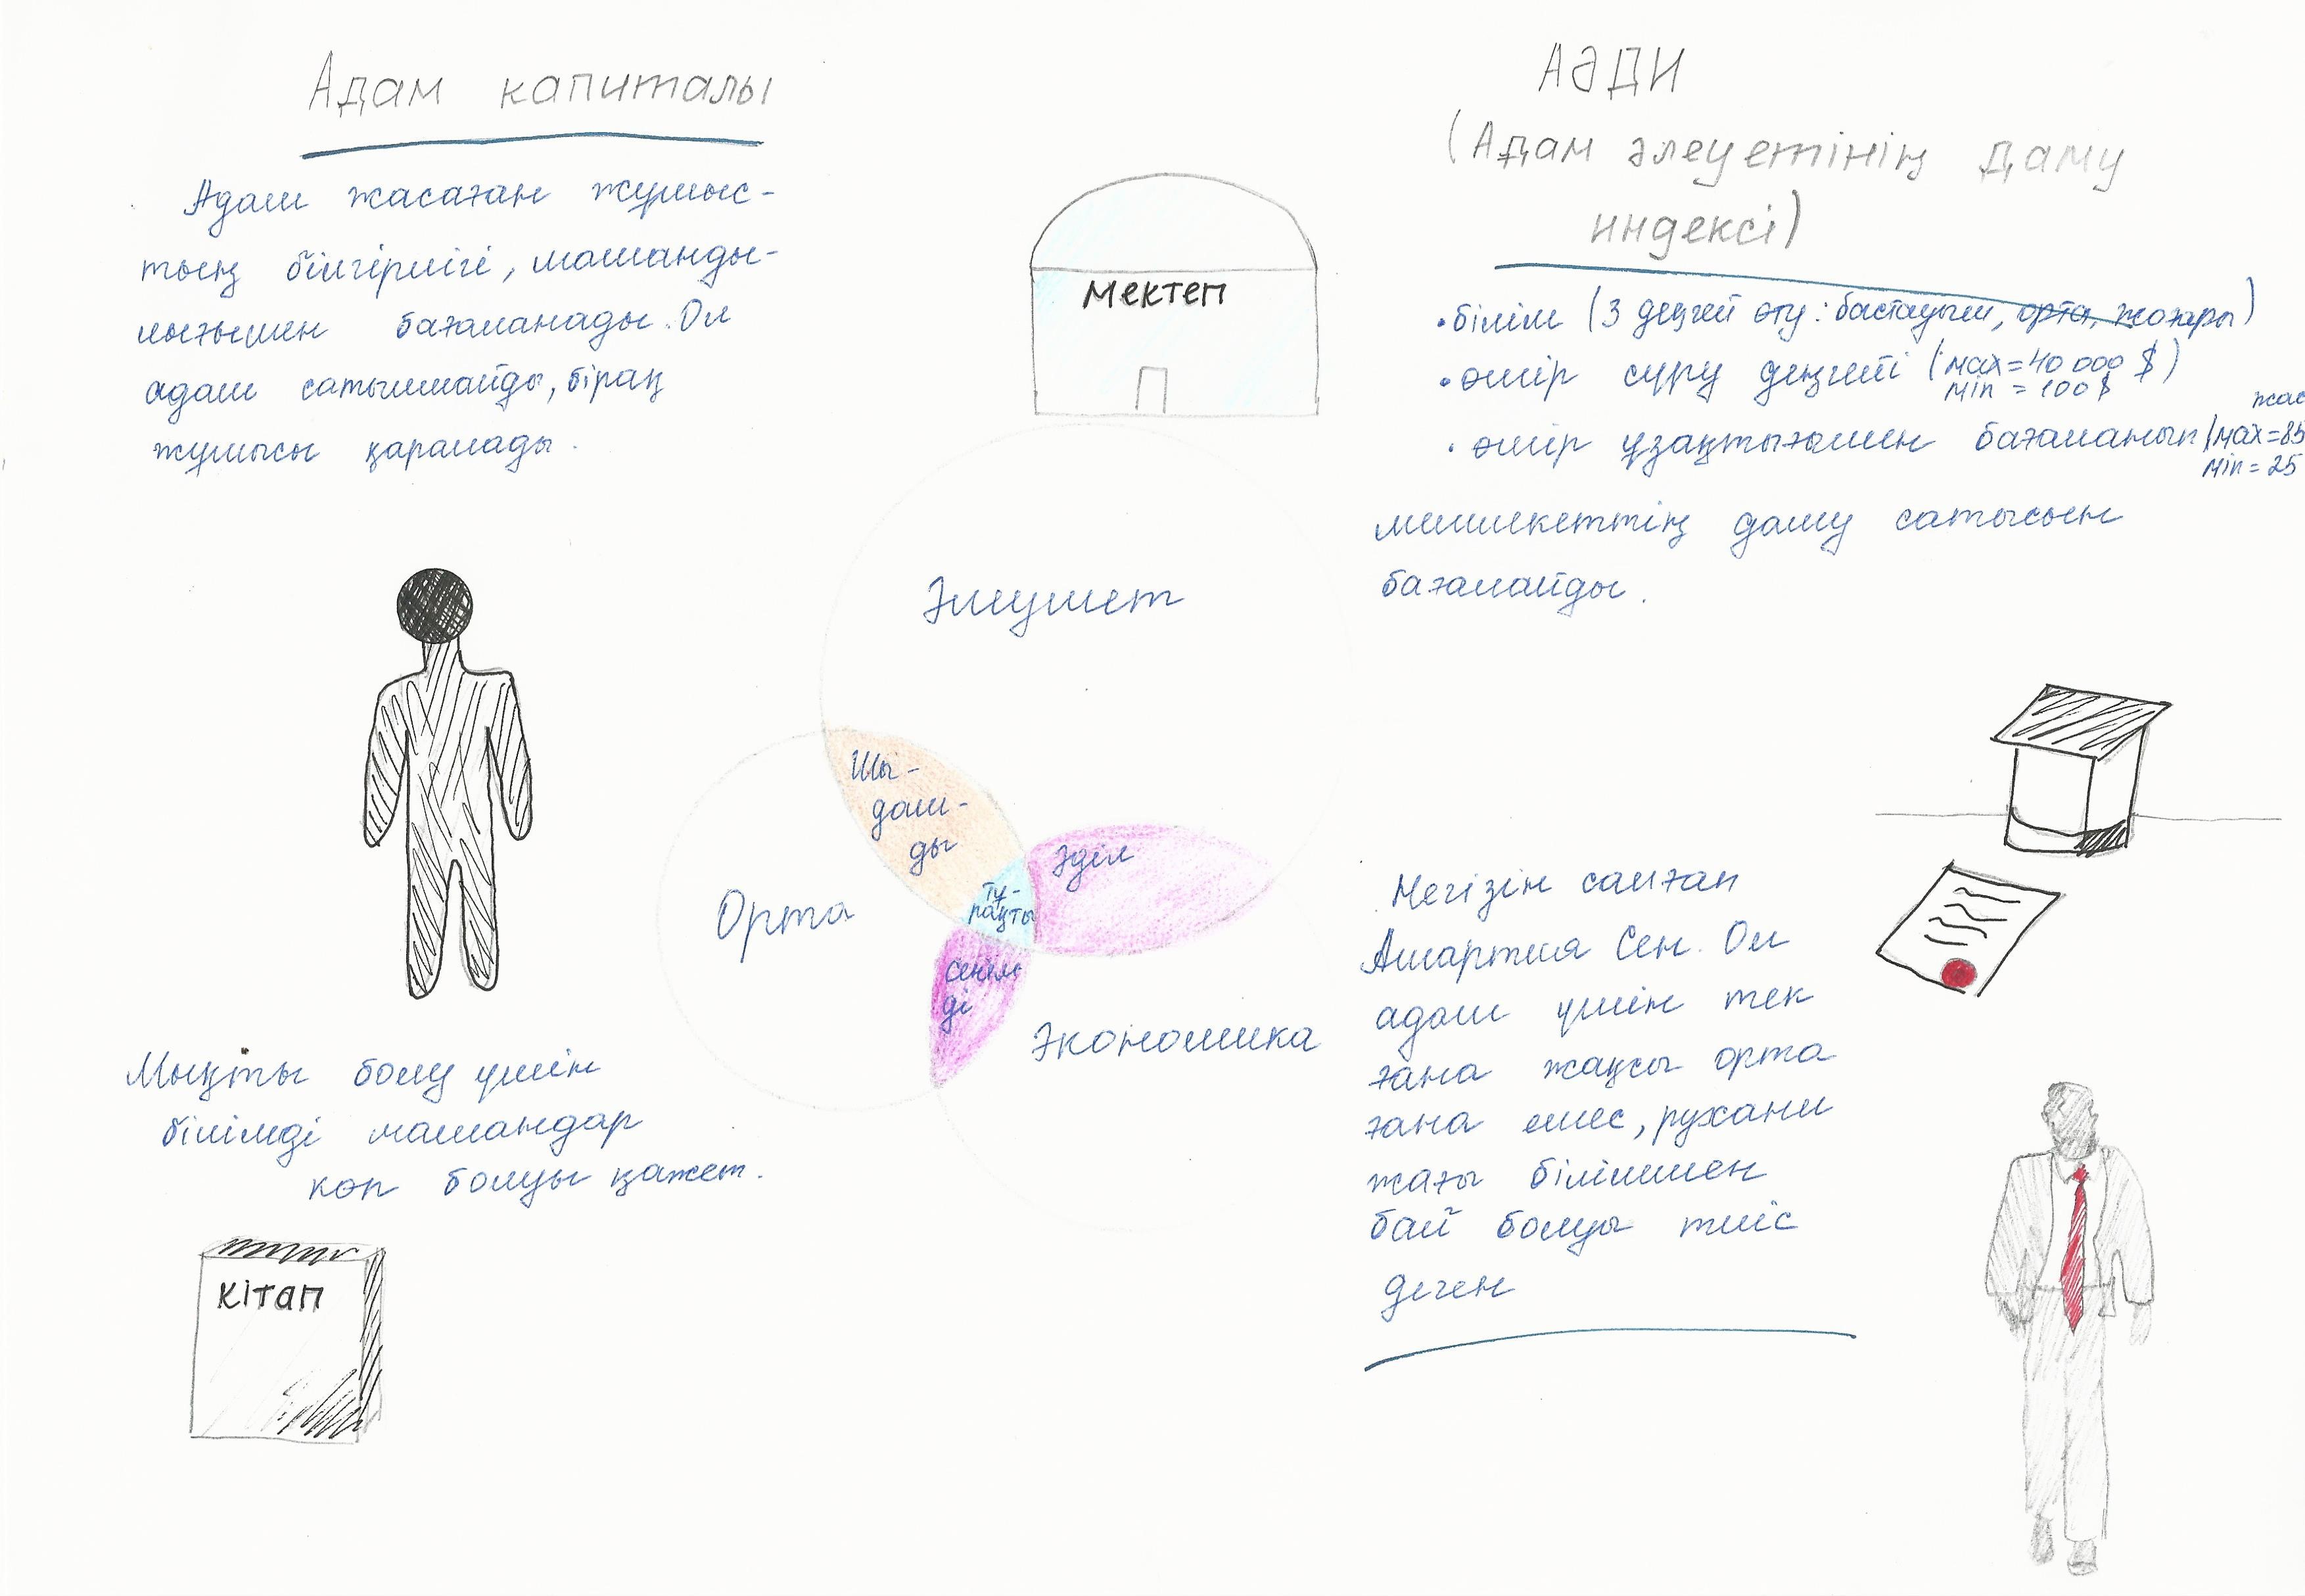 Адам капиталы
Адам жасаған жұмыс-
тың білгірлігі, маманды-
лығымен бағаланады. Ол
адам сатылмайды, бірақ
жұмысы қаралады.
Мықты болу үшін
білімді мамандар
көп болуы қажет.
кітап
мектеп
Әлеумет
Шы-
дам-
ды
Әділ
Тұ-
рақты
Сенім
ді
Орта
Экономика
АӘДИ
(Адам әлеуетінің даму
индексі)
•білім (3 деңгей өту: бастауыш, орта, жоғары)
•өмір сүру деңгейі (max=40 000 $)
min = 100$
жас
•өмір ұзақтығымен бағаланып (max=85
min=25
мемлекеттің даму сатысын
бағалайды.
Негізін салған
Амартия Сен. Ол
адам үшін тек
ғана жақсы орта
ғана емес, рухани
жағы біліммен
бай болуы тиіс
деген